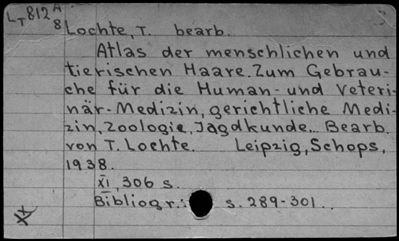 L T 812 A 8
Lochte, T. bearb.
Atlas der menschlichen und
tierischen Haare. Zum Gebrau-
che für die Human- und Veteri-
när-Medizin, gerichtliche Medi-
zin, Zoologie, Jagdkunde.. Bearb.
von T. Lochte. Leipzig, Schops,
1938.
XI, 306 s.
Bibliogr.: s. 289-301.